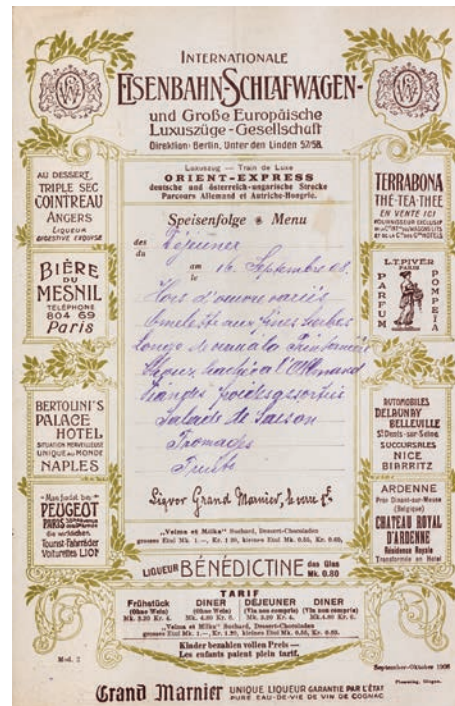 INTERNATIONALE
EISENBAHN-SCHLAFWAGEN-
und Große Europäische
Luxuszüge-Gesellschaft
Direktion: Berlin, Unter den Linden 57/58.
AU DESSERT
TRIPLE SEC
COINTREAU
ANGERS
LIQUEUR
DIGESTIVE EXQUISE
BIÈRE
DU
MESNIL
TÉLÉPHONE
804 69
Paris
BERTOLINI'S
PALACE
HOTEL
SITUATION MERVEILLEUSE
UNIQUE AU MONDE
NAPLES
PEUGEOT
PARIS
Tourist-Fahrräder
Voiturettes LION
Luxuszug — Train de Luxe
ORIENT-EXPRESS
deutsche und österreich-ungarische Strecke
Parcours Allemand et Autriche-Hongrie.
Speisenfolge Menu
des
du
Déjeuner
am
le
16 Septembre 08.
Hors d'œuvre variés
Omelette aux fines herbes
Longe de veau à la Printanière
à l'Allemand
Viandes froides assorties
Salade de Saison
Fromages
Fruits
Liqvor Grand Marnier, le verre
„Velma et Milka" Suchard, Dessert-Chocoladen
grosses Etui Mk. 1.—, Kr. 1 20, kleines Etui Mk. 0.55, Kr. 0.65.
LIQUEUR BÉNÉDICTINE das Glas
Mk. 0.80
TERRABONA
THE-TEA-THEE
EN VENTE ICI
FOURNISSEUR EXCLUSIF
L.T. PIVER
PARIS
PARFUM
POMPEÏA
AUTOMOBILES
DELAUNAY
BELLEVILLE
St Denis-sur-Seine
SUCCURSALES
NICE
BIARRITZ
ARDENNE
Près Dinant-sur-Meuse
(Belgique)
CHATEAU ROYAL
D'ARDENNE
Résidence Royale
Transformée en Hotel
TARIF
Frühstück DINER DÉJEUNER DINER
(Ohne Wein) (Ohne Wein) (Vin non compris) (Vin non compris)
Mk. 3.20 Kr. 4. Mk. 4.80 Kr. 6. Mk. 3.20 Kr. 4. Mk. 4.80 Kr. 6.
„Velma et Milka" Suchard, Dessert-Chocoladen
grosses Etui Mk. 1.—, Kr. 1.20, kleines Etui Mk. 0.55, Kr. 0.65.
Kinder bezahlen vollen Preis —
Les enfants paient plein tarif.
Mod. 2
September-Oktober 1908
Grand Marnier UNIQUE LIQUEUR GARANTIE PAR L'ÉTAT
PURE EAU-DE-VIE DE VIN DE COGNAC